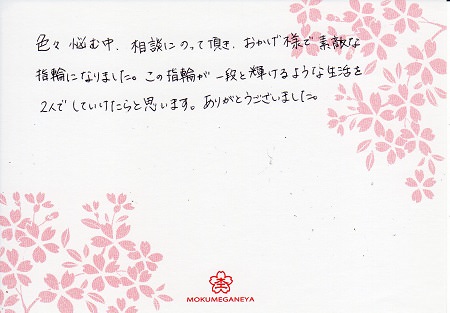 色々悩む中、相談にのって頂き、おかげ様で素敵な
指輪になりました。この指輪が一段と輝けるような生活を
2人でしていけたらと思います。ありがとうございました。
MOKUMEGANEYA